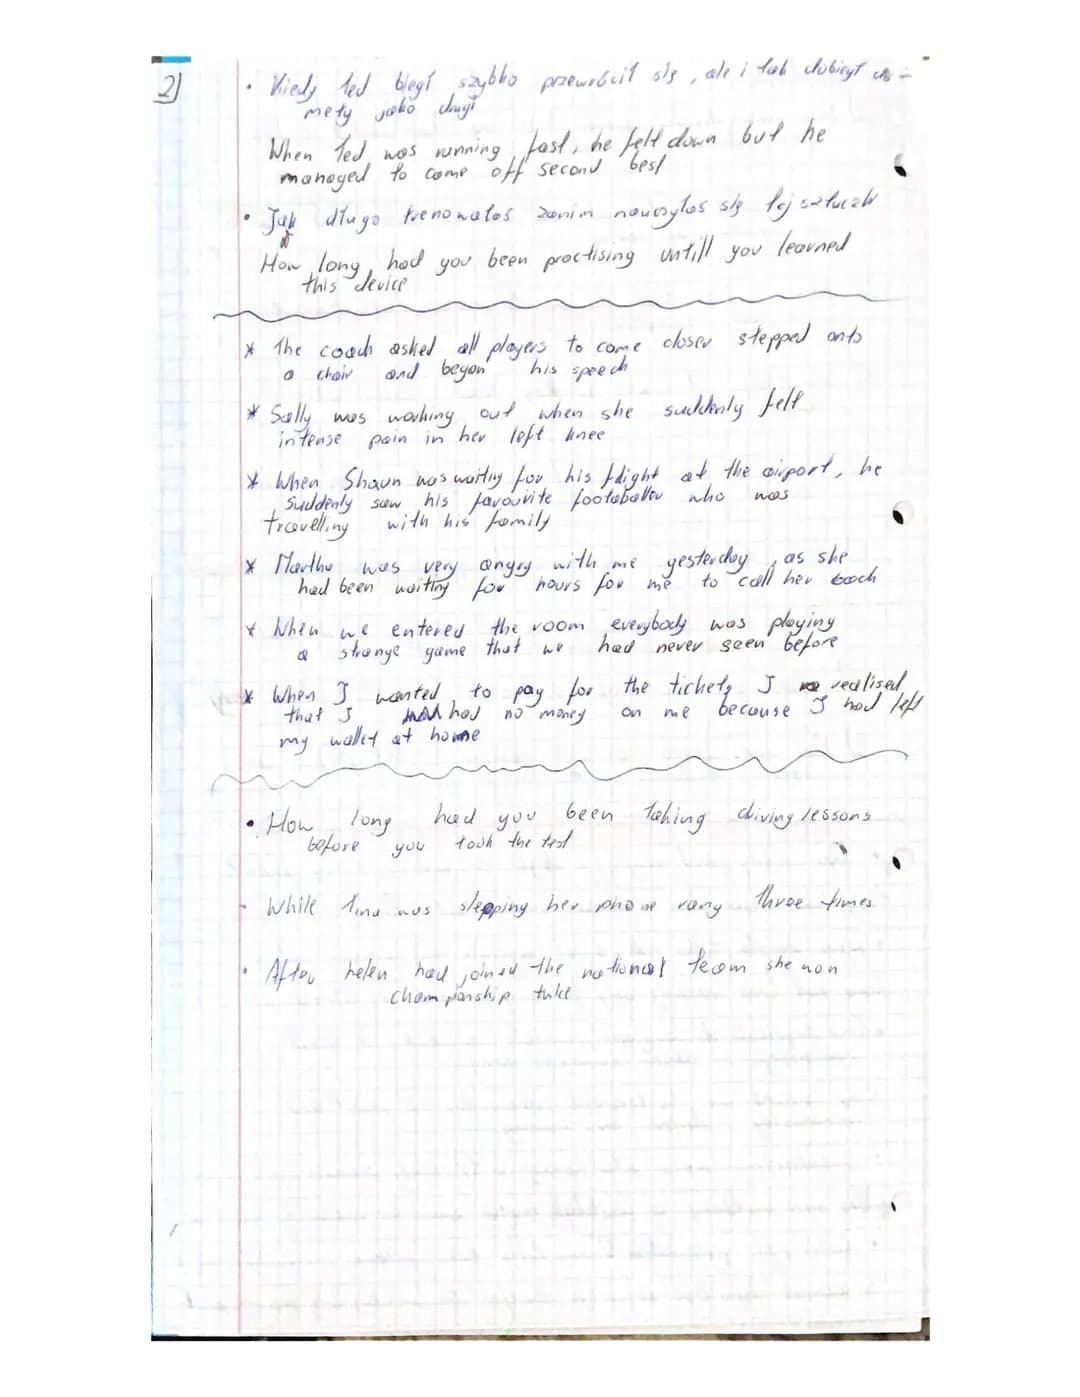 2)
• Kiedy Ted biegł szybko przewrócił się, ale i tak dobiegł do -
mety jako drugi
When Ted was running fast, he felt down but he
managed to come off second best
• Jak długo trenowałaś zanim nauczyłaś się tej sztuczki
How long had you been practising untill you learned
this device
* The coach asked all players to come closer stepped onto
a chair and began his speech
* Sally was working out when she suddenly felt
intense pain in her left knee
* When Shaun was waiting for his flight at the airport, he
suddenly saw his favourite footballer who was
travelling with his family
* Martha was very angry with me yesterday, as she
had been waiting for hours for me to call her back
* When we entered the room everybody was playing
a strange game that we had never seen before
* When I wanted to pay for the tickets I realised
that I had no money on me because I had left
my wallet at home
• How long had you been taking driving lessons
before you took the test
- While Tina was sleeping her phone rang three times
• After helen had joined the national team she won
championship twice